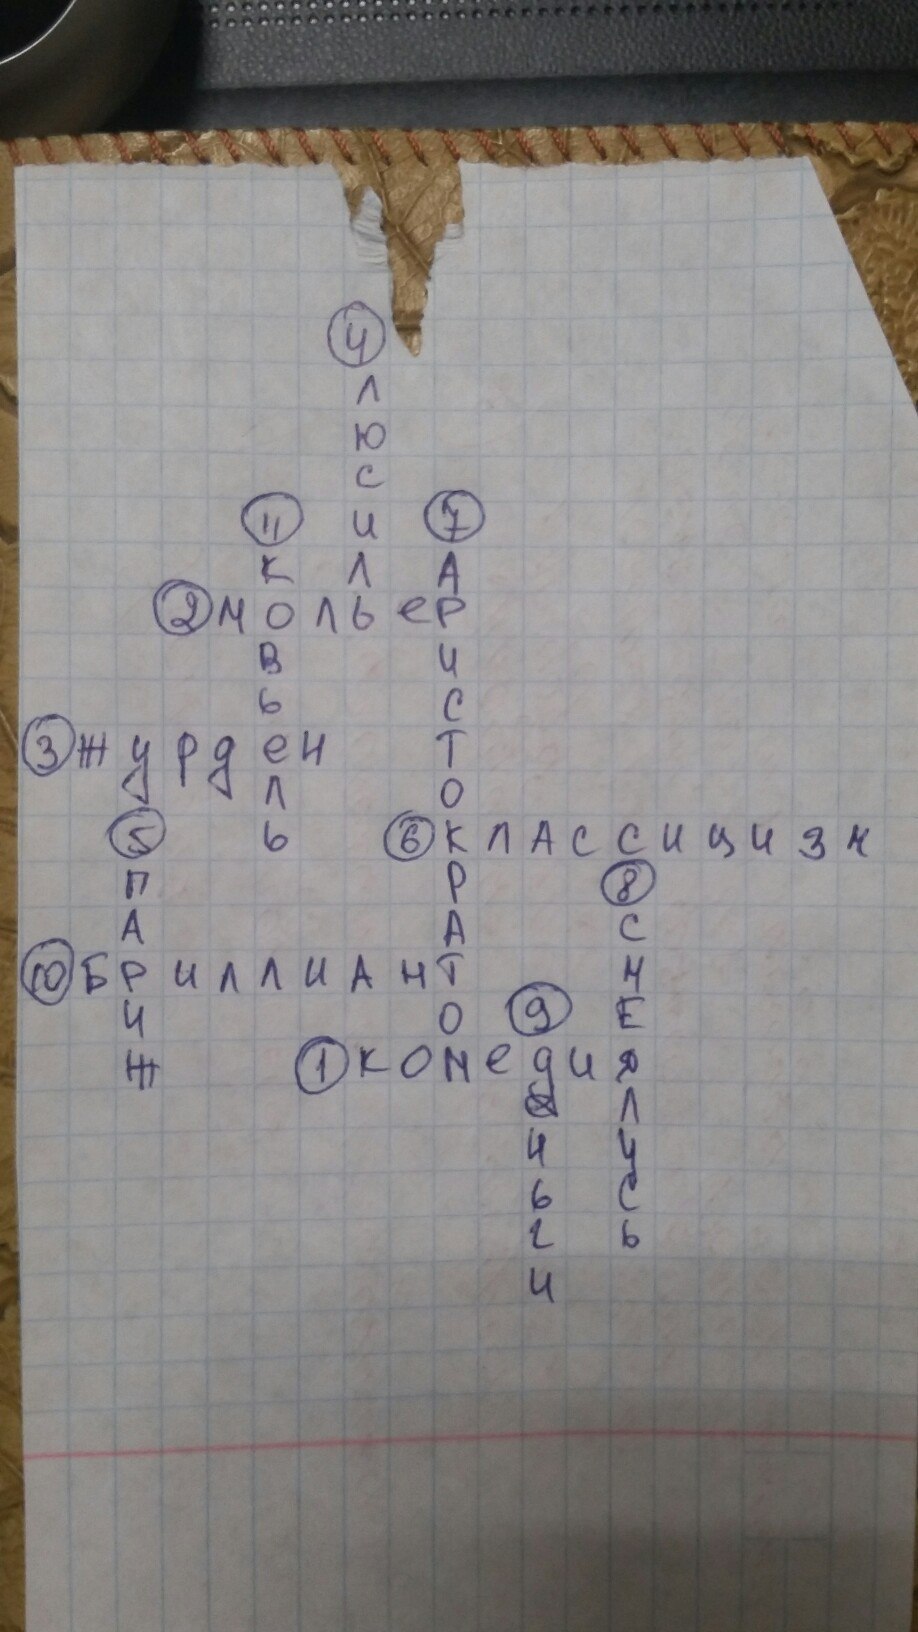 4 ЛЮСИЛЬ
11 КОВЬЕЛЬ
7 АРИСТОКРАТОМ
2 МОЛЬеР
3 ЖУРДеН
5 ПАРИЖ
6 КЛАССИЦИЗМ
8 СМЕЯЛУСЬ
10 БРИЛЛИАНТ
9 ДЕНЬГИ
1 КОМеДИЯ